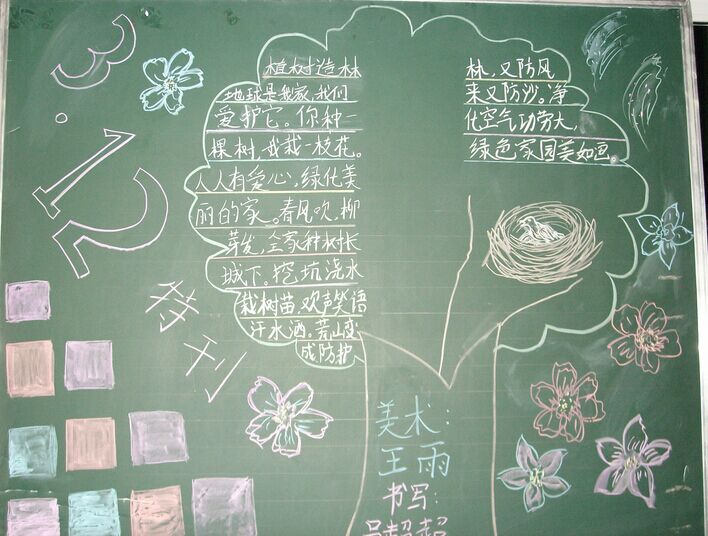 3.12
特刊
植树造林
地球是我家,我们
爱护它。你种一
棵树,我栽一枝花。
人人有爱心,绿化美
丽的家。春风吹,柳
芽发,全家种树长
城下。挖坑浇水
栽树苗,欢声笑语
汗水洒。荒山变
成防护
林,又防风
来又防沙。净
化空气功劳大,
绿色家园美如画。
美术:
王雨
书写:
吕超超